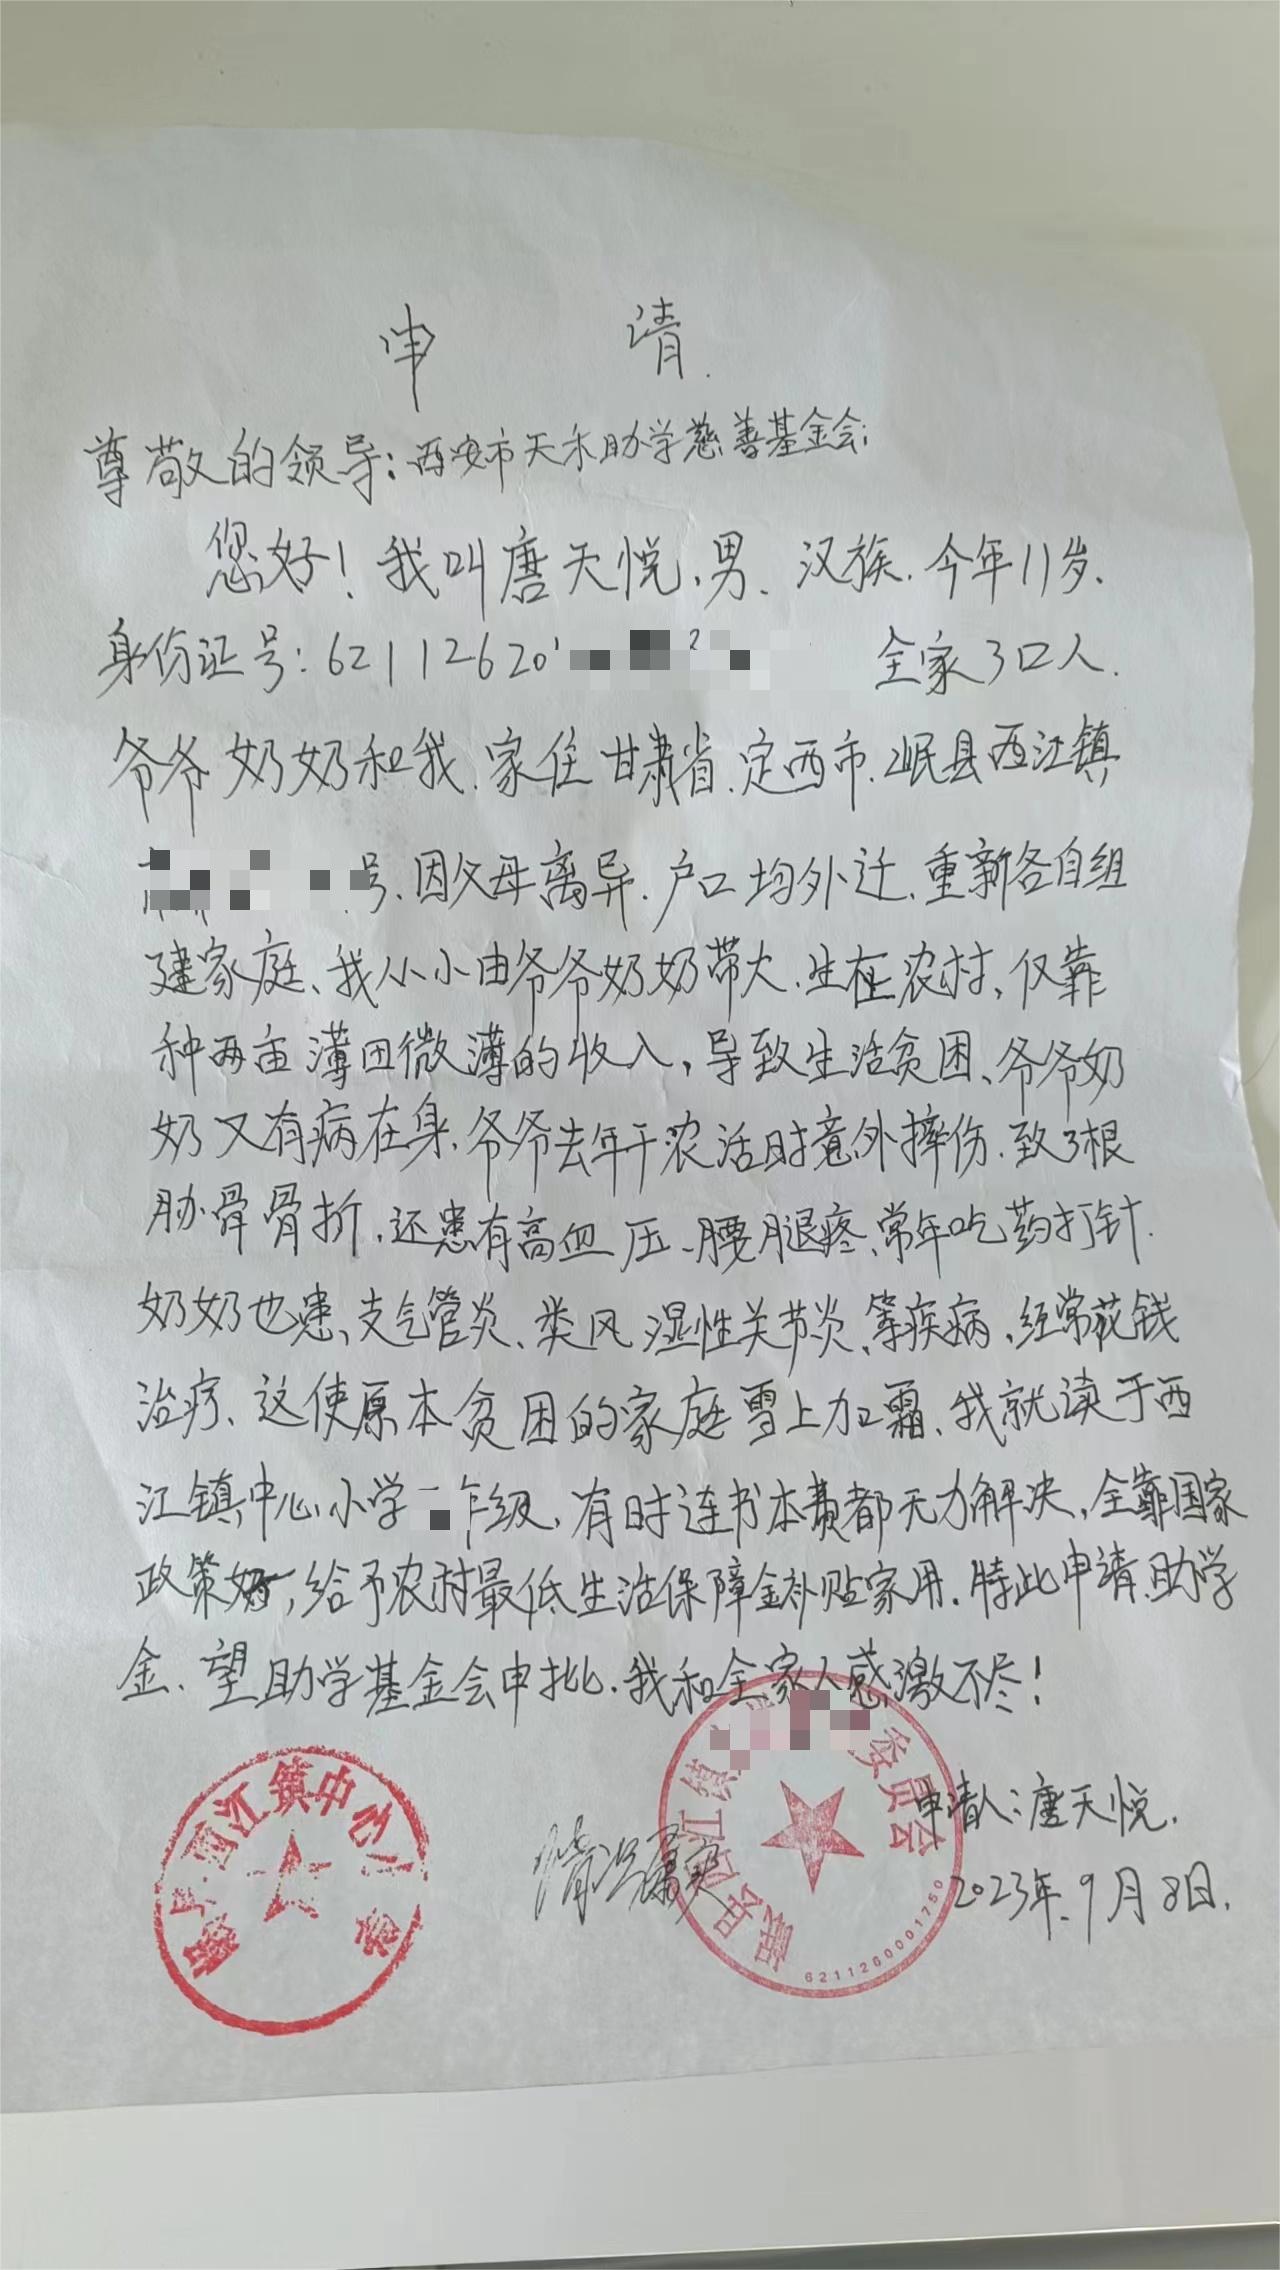 申 请.
尊敬的领导:西安市天禾助学慈善基金会:
您好!我叫唐天悦,男、汉族.今年11岁、
身份证号:62112620 全家3口人.
爷爷、奶奶和我.家住甘肃省.定西市.岷县西江镇
号、因父母离异.户口均外迁、重新各自组
建家庭、我从小由爷爷奶奶带大.生在农村,仅靠
种两亩薄田微薄的收入,导致生活贫困、爷爷奶
奶又有病在身.爷爷去年干农活时意外摔伤.致3根
肋骨骨折,还患有高血压、腰腿疼、常年吃药打针.
奶奶也患、支气管炎、类风湿性关节炎、等疾病,经常花钱
治疗、这使原本贫困的家庭雪上加霜、我就读于西
江镇中心小学 年级,有时连书本费都无力解决,全靠国家
政策好,给予农村最低生活保障金补贴家用.特此申请助学
金、望助学基金会申批.我和全家人感激不尽!
申请人:唐天悦.
情况属实
2023年.9月8日.
西江镇中心
岷县西江镇 委员会
6211260001750